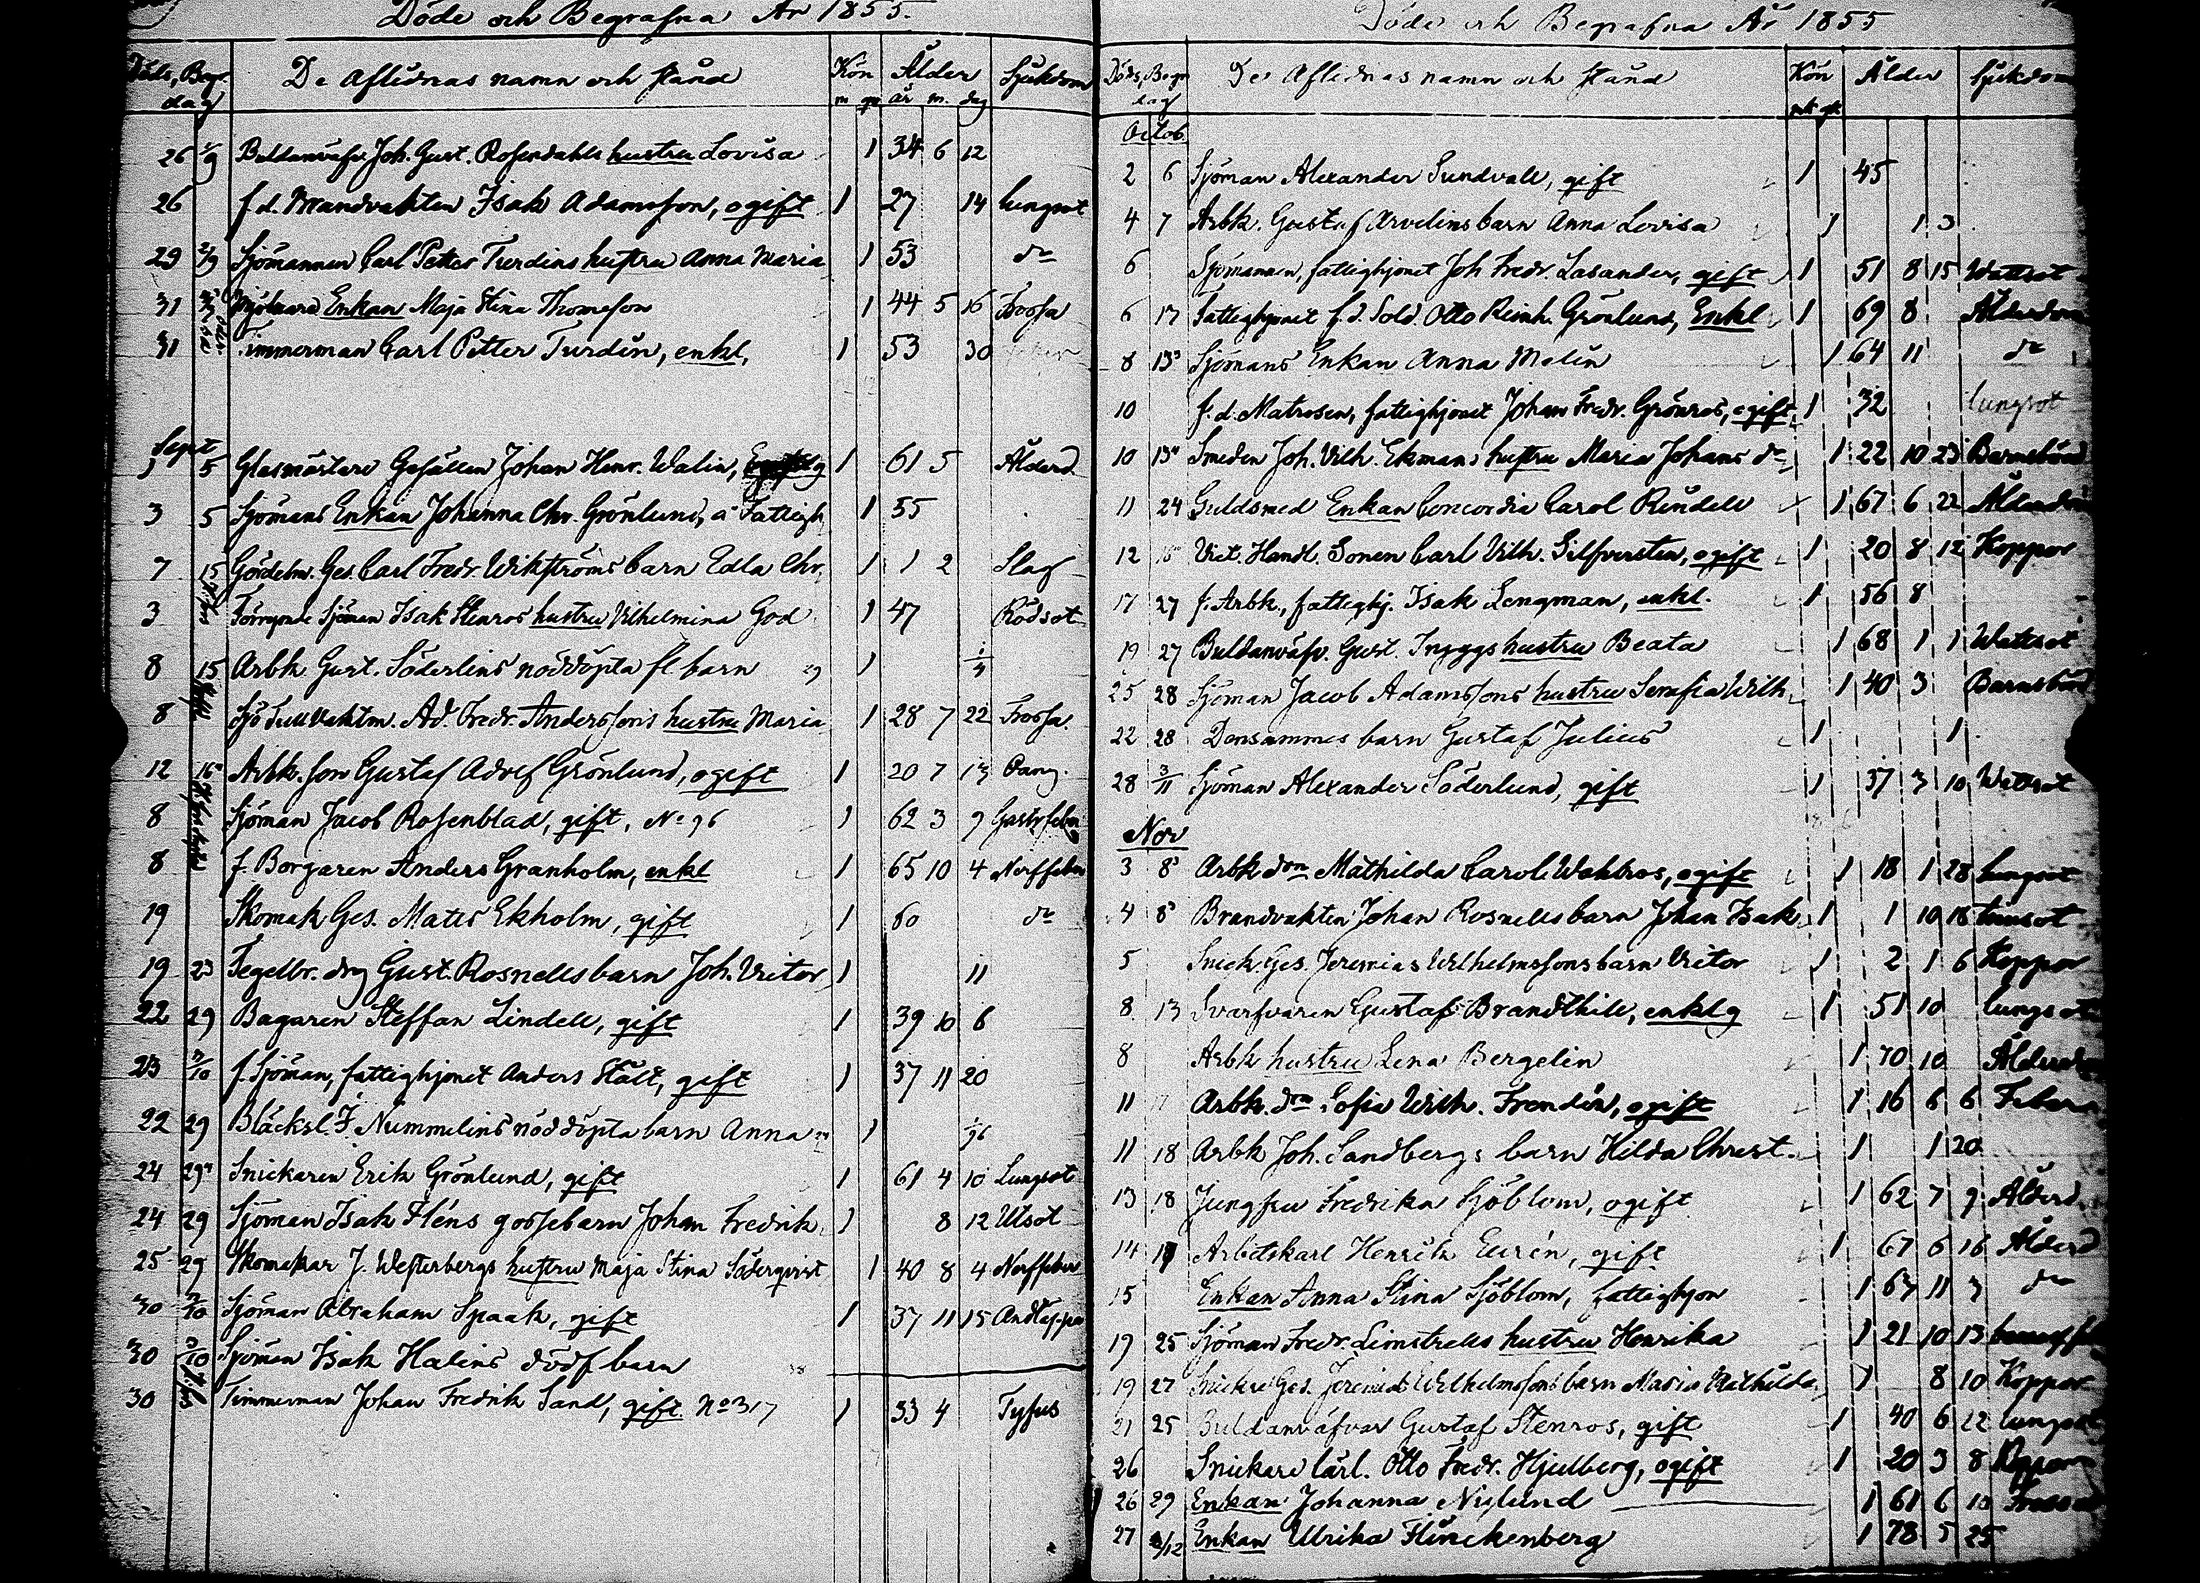 Döde och Begrafna År 1855.
Döds, Begr. dag De aflidnas namn och stånd Kön m qv Ålder år m. dag Sjukdom
26 1/9 Buldanväfv. Joh. Gust. Rosendahls hustru Lovisa 1 34 6 12
26 f.d. Brandvakten Isak Adamsson, ogift 1 27 14 lungsot
29 2/9 Sjömannen Carl Petter Turdins hustru Anna Maria 1 53 do
31 Enkan Maja Stina Thomesson 1 44 5 16 Frossa
31 Timmerman Carl Petter Turdin, enkl. 1 53 30
Sept
1 5 Glasmästare Gesällen Johan Henr. Walin, 1 61 5 Ålderd.
3 5 Sjömans Enkan Johanna Chr. Grönlund, a Fattigh. 1 55
7 15 Gördelm. Ges. Carl Fredr. Wikströms barn Edla Chr. 1 1 2 Slag
3 Sjöman Isak Stenros hustru Vilhelmina God 1 47 Rödsot
8 15 Arbk. Gust. Söderlins nöddöpta fl. barn 1 1/4
8 Sjö Tull Vaktm. Ad. Fredr. Anderssons hustru Maria 1 28 7 22 Frossa
12 16 Arbk. son Gustaf Adolf Grönlund, ogift 1 20 7 13
8 Sjöman Jacob Rosenblad, gift, No 96 1 62 3 9 Gastr. feber
8 f. Borgaren Anders Granholm, enkl 1 65 10 4 Nerffeber
19 Skomak. Ges. Matts Ekholm, gift 1 60 do
19 23 Tegelbr. drg Gust. Rosnells barn Joh. Victor 1 11
22 29 Bagaren Steffan Lindell, gift 1 39 10 6
23 2/10 f. Sjöman, fattighjonet Anders Stålt, gift 1 37 11 20
22 29 Bläcksl. F. Nummelins nöddöpta barn Anna 1 1/96
24 29 Snickaren Erik Grönlund, gift 1 61 4 10 Lungsot
24 29 Sjöman Isak Fléns gossebarn Johan Fredrik 1 8 12 Utsot
25 29 Skomakar J. Westerbergs hustru Maja Stina Söderqvist 1 40 8 4 Nerffeber
30 2/10 Sjöman Abraham Spaak, gift 1 37 11 15 Andtäppa
30 3/10 Sjöman Isak Halins dödf barn
30 Timmerman Johan Fredrik Sand, gift No 317 1 33 4 Tyfus
Döde och Begrafna År 1855
Döds, Begr. dag De Aflidnas namn och stånd Kön Ålder Sjukdom
Octob.
2 6 Sjöman Alexander Sundvall, gift 1 45
4 7 Arbk. Gustaf Arvelins barn Anna Lovisa 1 1 3
6 Sjömannen, fattighjonet Joh Fredr. Lasander, gift 1 51 8 15 Wattsot
6 17 Fattighjonet f.d. Sold. Otto Reinh. Grönlund, Enkl 1 69 8 Ålderdom
8 13 Sjömans Enkan Anna Melin 1 64 11 do
10 f.d. Matrosen, fattighjonet Johan Fredr. Grönros, ogift 1 32 lungsot
10 13 Smeden Joh. Vilh. Ekmans hustru Maria Johans dr 1 22 10 23 Barnsbörd
11 24 Guldsmed Enkan Concordia Carol Rundell 1 67 6 22 Ålderdom
12 Vict. Handl. Sonen Carl Vilh. Silfversten, ogift 1 20 8 12 Koppor
17 27 f. Arbk., fattighj. Isak Lengman, enkl. 1 56 8
19 27 Buldanväfv. Gust. Tryggs hustru Beata 1 68 1 1 Wattsot
25 28 Sjöman Jacob Adamssons hustru Serafia Wilh. 1 40 3 Barnsbörd
22 28 Densammes barn Gustaf Julius 1 1
28 3/11 Sjöman Alexander Söderlund, gift 1 37 3 10 Wattsot
Nov
3 8 Arbk. drn Mathilda Carol. Wahlros, ogift 1 18 1 28 lungsot
4 8 Brandvakten Johan Rosnells barn Johan Isak 1 1 10 18
5 Snick. Ges. Jeremias Wilhelmssons barn Victor 1 2 1 6 Koppor
8 13 Svarfvaren Gustaf Brandthill, enklg 1 51 10 lungsot
8 Arbk hustru Lena Bergelin 1 70 10 Ålderdom
11 Arbk. drn Sofia Wilh. Frendin, ogift 1 16 6 6 Feber
11 18 Arbk Joh. Sandbergs barn Hilda Christ. 1 1 20
13 18 Jungfru Fredrika Sjöblom, ogift 1 62 7 9 Ålderd.
14 18 Arbetskarl Henrik Eurén, gift 1 67 6 16 Ålderd
15 Enkan Anna Stina Sjöblom, fattighjon 1 67 11 3 do
19 25 Sjöman Fredr. Limstrells hustru Henrika 1 21 10 13
19 27 Snickre Ges. Jeremias Wilhelmssons barn Maria Mathilda 1 8 10 Koppor
21 25 Buldanväfvar Gustaf Stenros, gift 1 40 6 22 lungsot
26 Snickare Carl. Otto Fredr. Hjelberg, ogift 1 20 3 8 Koppor
26 29 Enkan Johanna Nylund 1 61 6 10 Frossa
27 2/12 Enkan Ulrika Flinckenberg 1 78 5 25